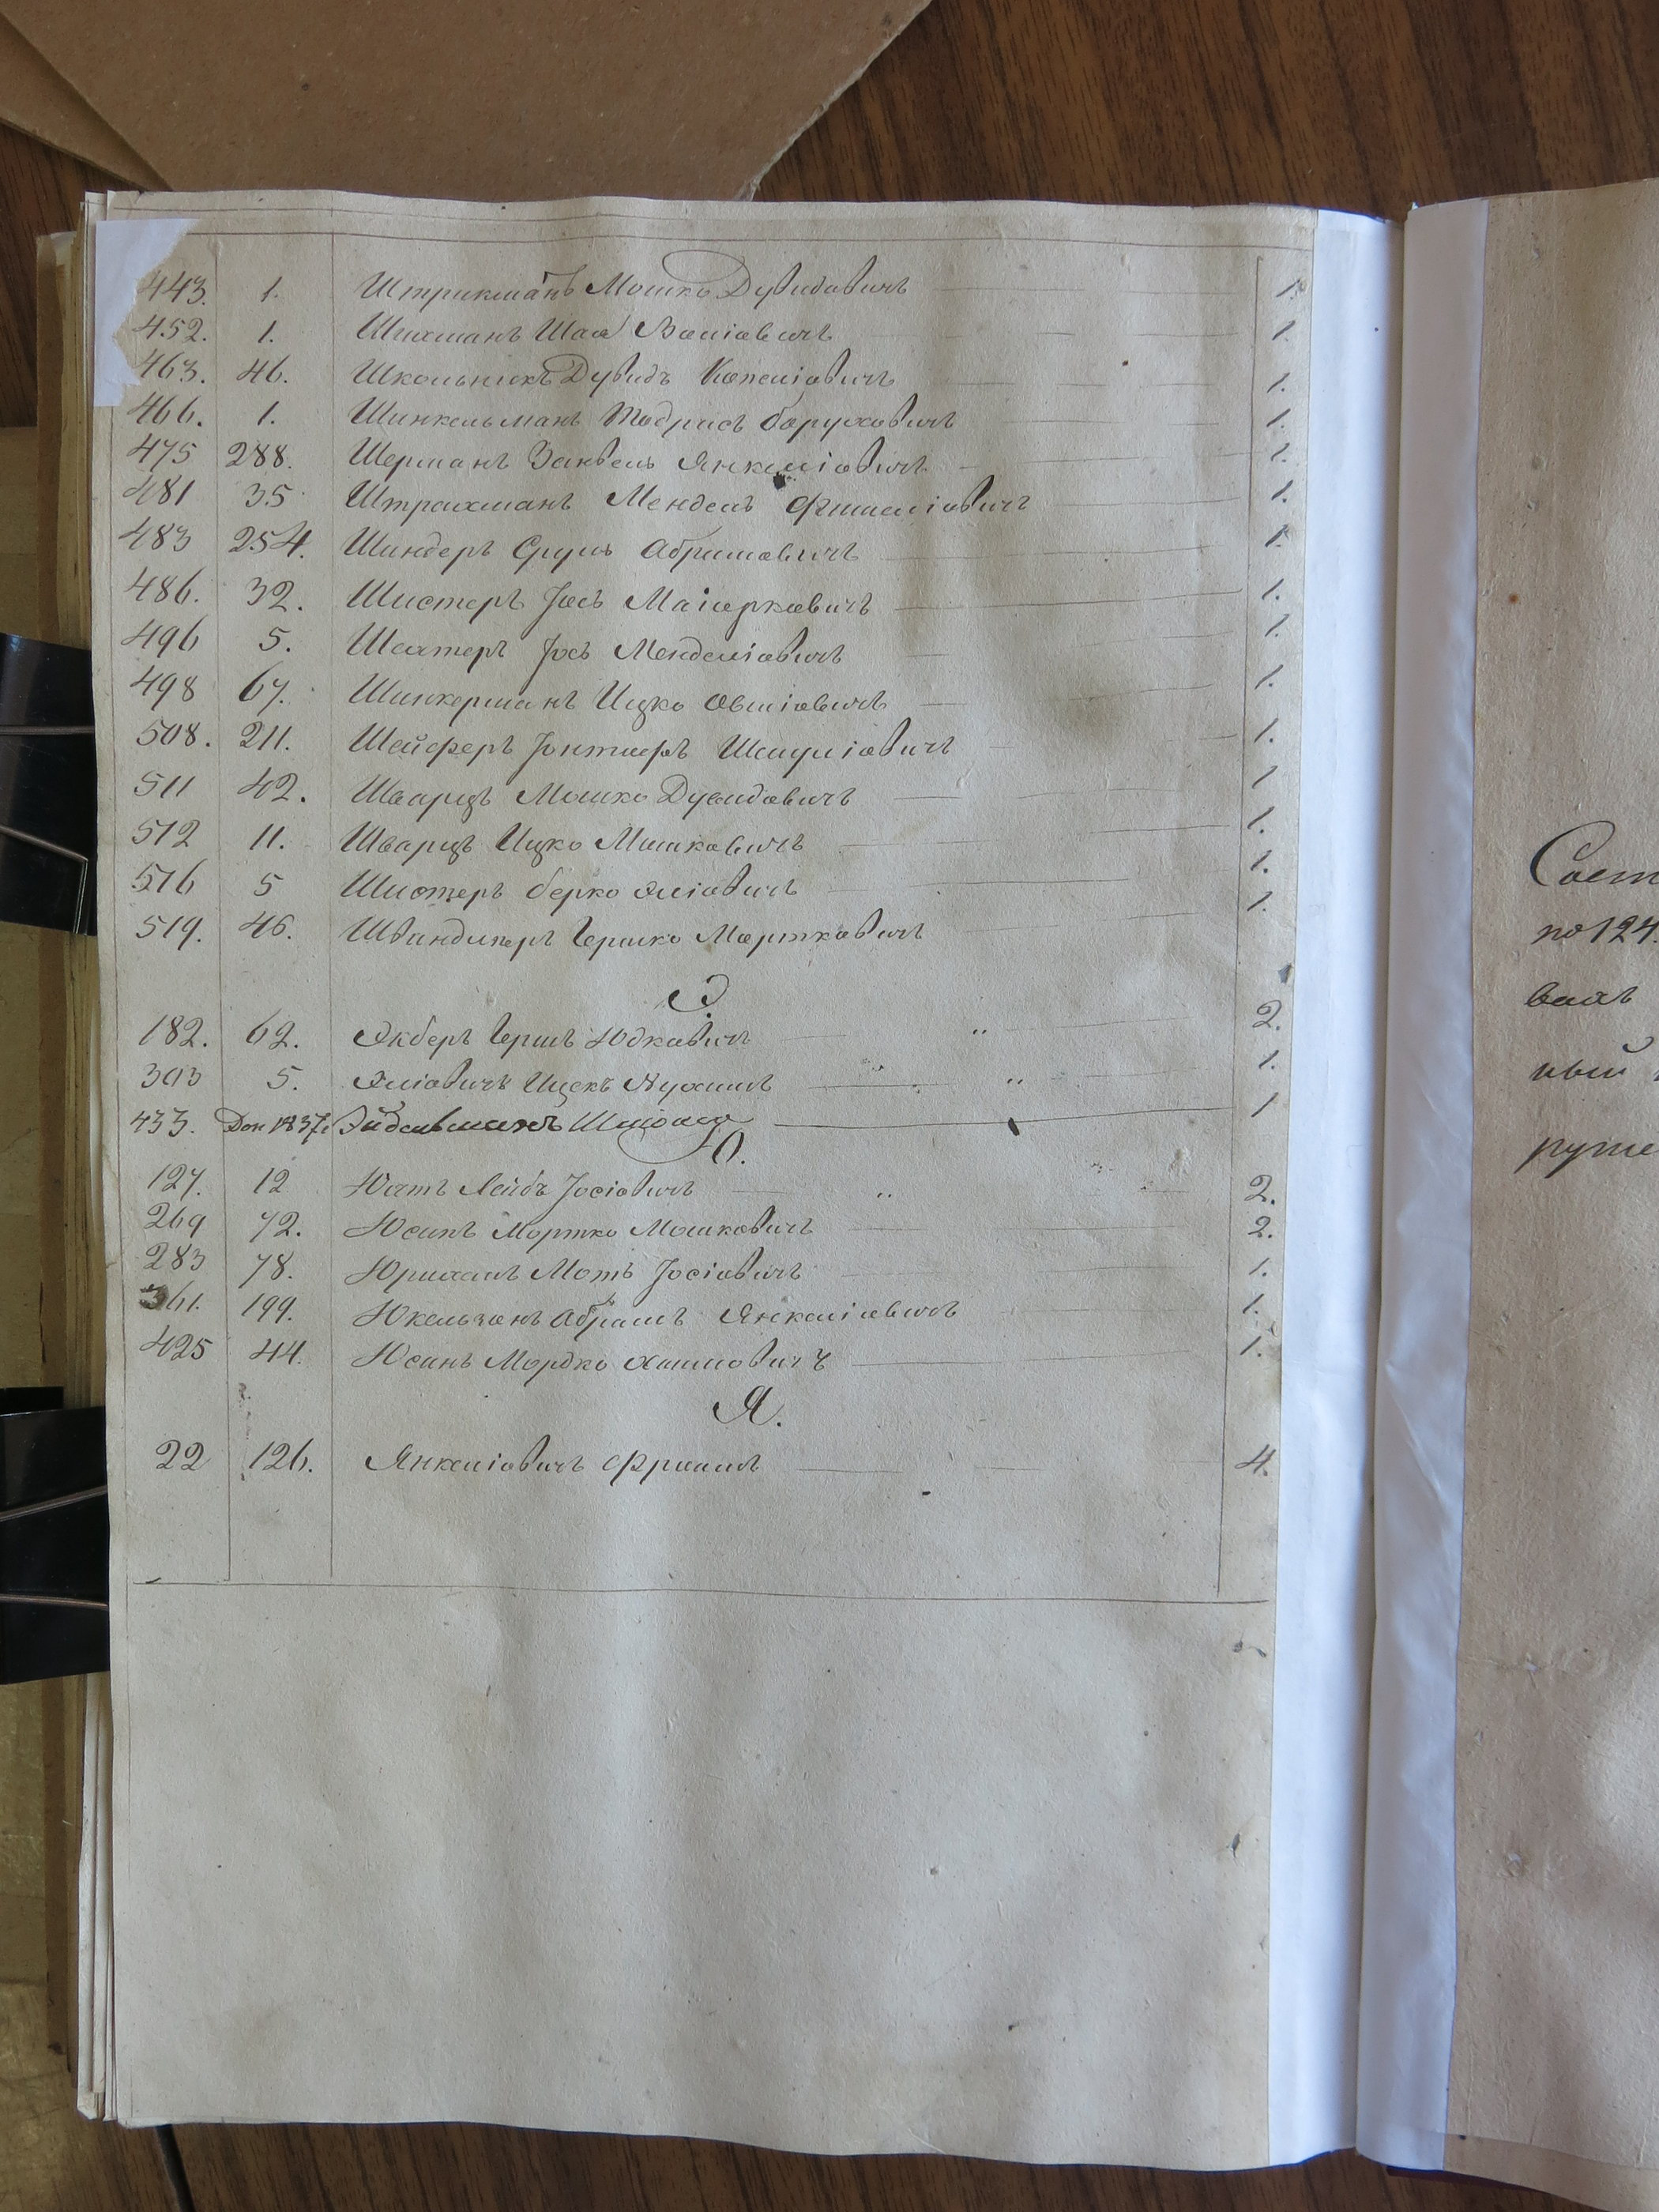 443. 1. Штрикманъ Мошко Дувидовичъ 1.
452. 1. Шихманъ Шая 1.
463. 46. Школьникъ Дувидъ Копеліовичъ 1.
466. 1. Шинкельманъ Тодрисъ Боруховичъ 1.
475 288. Шерманъ Занвель Янкеліовичъ 1.
481 35 Штрахманъ Мендель Фишеліовичъ 1.
483 254. Шиндеръ Сруль Абрамовичъ 1.
486. 32. Шистеръ Іось Маіорковичъ 1.
496 5. Іось Менделіовичъ 1.
498 67. Шинкерманъ Ицко 1.
508. 211. Шейферъ Іонтыфъ Шмуліовичъ 1.
511 42. Шварцъ Мошко Дувидовичъ 1
512 11. Шварцъ Ицко Мошковичъ 1.
516 5 Шистеръ Берко Эліовичъ 1.
519. 46. Гершко Мортковичъ 1.
Э.
182. 62. Экберъ Гершъ Юдковичъ " 2.
303 5. Эліовичъ Ицекъ Нухимъ " 1.
433. Доп 1837. Эйдельманъ Шлиома 1
Ю.
127. 12 Юатъ Лейбъ Іосіовичъ " 2.
269 72. Юсимъ Мортко Мошковичъ 2.
283 78. Мотъ Іосіовичъ 1.
361. 199. Юкельзонъ Абрамъ Янкеліовичъ 1.
425 44. Юсинъ Мордко Хаимовичъ 1.
Я.
22 126. Янкеліовичъ Фроимъ 4.
по 124.